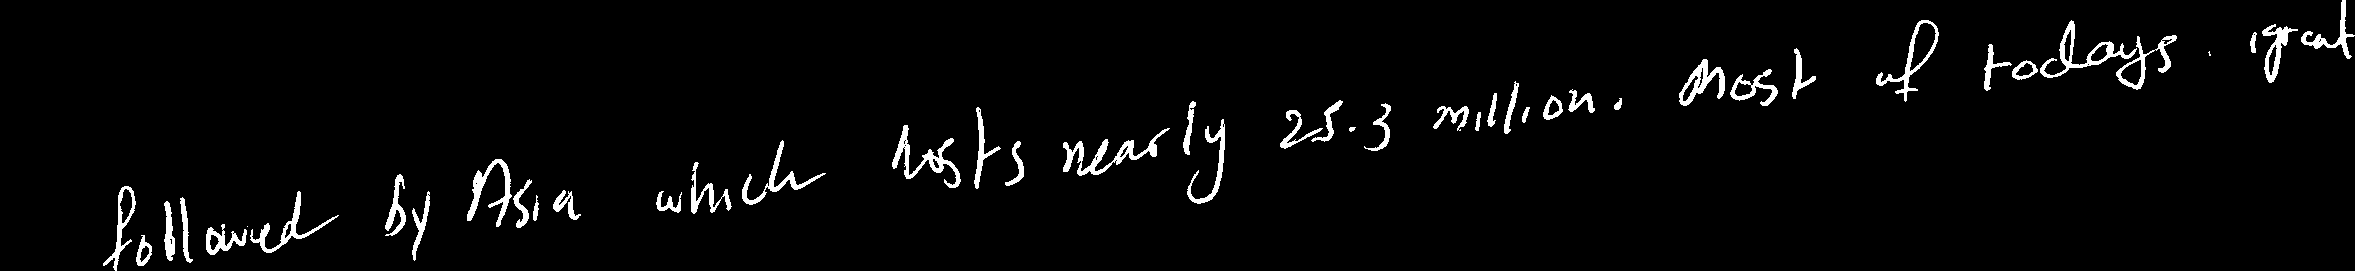 followed by Asia which hosts nearly 25.3 million. Most of todays